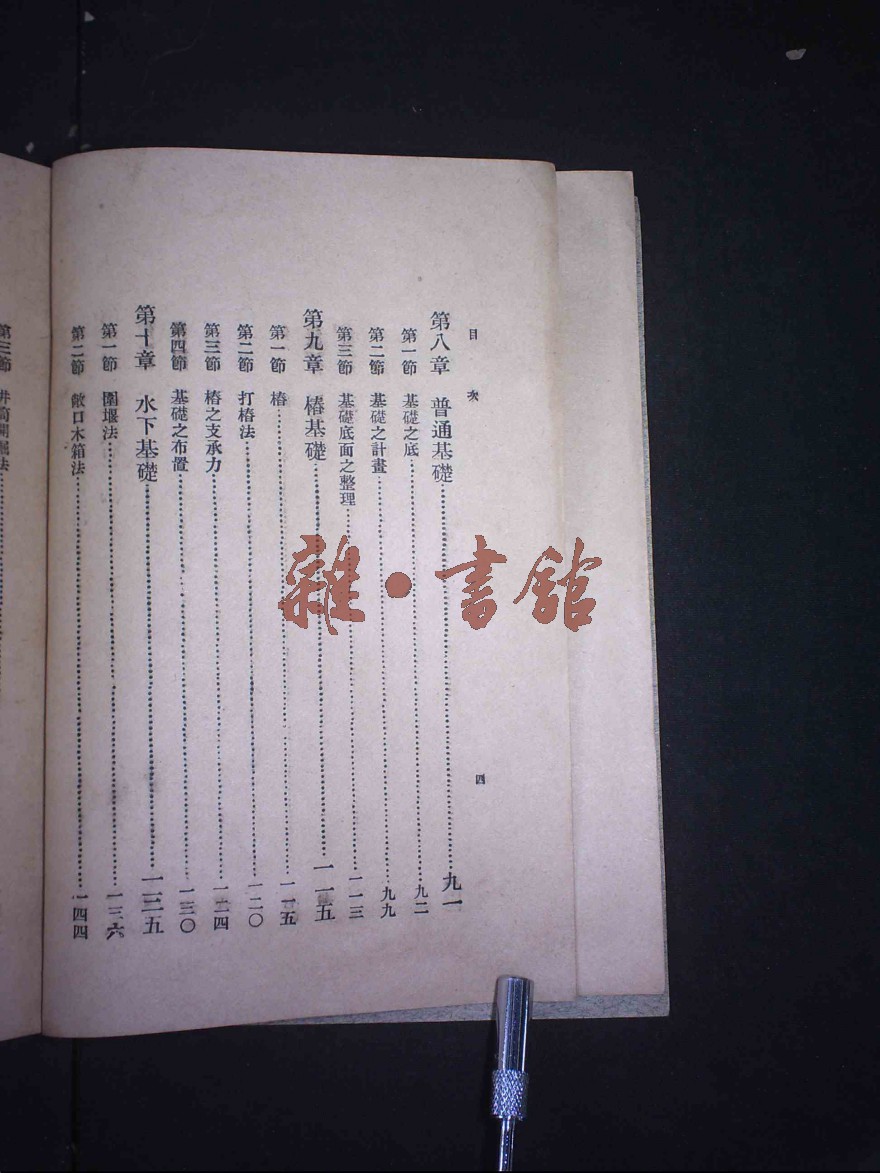 目次
四
第八章 普通基礎……九一
第一節 基礎之底……九二
第二節 基礎之計畫……九九
第三節 基礎底面之整理……一一三
第九章 樁基礎……一一五
第一節 樁……一一五
第二節 打樁法……一二〇
第三節 樁之支承力……一二四
第四節 基礎之布置……一三〇
第十章 水下基礎……一三五
第一節 圍堰法……一三六
第二節 敞口木箱法……一四四
第三節 井筒開掘法
雜·書館